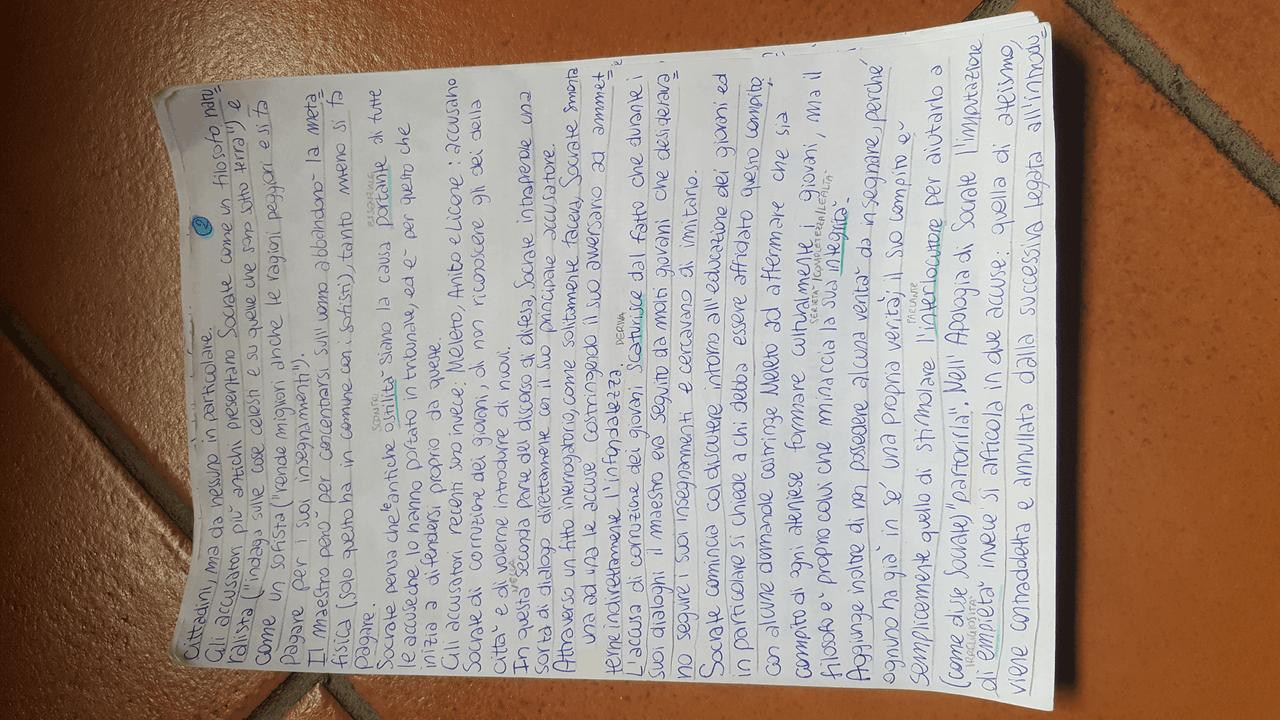 2
cittadini, ma da nessuno in particolare.
Gli accusatori più antichi presentano Socrate come un filosofo natu=
ralista ("indaga sulle cose celesti e su quelle che sono sotto terra") e
come un sofista ("rende migliori anche le ragioni peggiori e si fa
pagare per i suoi insegnamenti").
Il maestro però per concentrarsi sull'uomo abbandonò la meta=
fisica (solo questo ha in comune con i sofisti), tanto meno si fa
pagare.
SCONTRI
BISOGNINE
Socrate pensa che le antiche ostilità siano la causa portante di tutte
le accuse che lo hanno portato in tribunale, ed è per questo che
inizia a difendersi proprio da queste.
Gli accusatori recenti sono invece: Meleto, Anito e Licone: accusano
Socrate di corruzione dei giovani, di non riconoscere gli dei della
città e di volerne introdurre di nuovi.
NELLA
In questa seconda parte del discorso di difesa, Socrate intraprende una
sorta di dialogo direttamente con il suo principale accusatore.
Attraverso un fitto interrogatorio, come solitamente faceva, Socrate smonta
una ad una le accuse costringendo il suo avversario ad ammet=
tere indirettamente l'infondatezza.
DERIVA
L'accusa di corruzione dei giovani scaturisce dal fatto che durante i
suoi dialoghi il maestro era seguito da molti giovani che desiderava=
no seguire i suoi insegnamenti e cercavano di imitarlo.
Socrate comincia col discutere intorno all'educazione dei giovani ed
in particolare si chiede a chi debba essere affidato questo compito.
Con alcune domande costringe Meleto ad affermare che sia
compito di ogni ateniese formare culturalmente i giovani, ma il
SERIETÀ/COMPLETEZZA/LEALTÀ
filosofo è proprio colui che minaccia la sua integrità.
Aggiunge inoltre di non possedere alcuna verità da insegnare, perché
ognuno ha già in sé una propria verità, il suo compito è
PARLANTE
semplicemente quello di stimolare l'interlocutore per aiutarlo a
(come disse Socrate) "partorirla". Nell'Apologia di Socrate l'imputazione
IRRELIGIOSITÀ
di empietà invece si articola in due accuse: quella di ateismo,
viene contraddetta e annullata dalla successiva legata all'introdu=